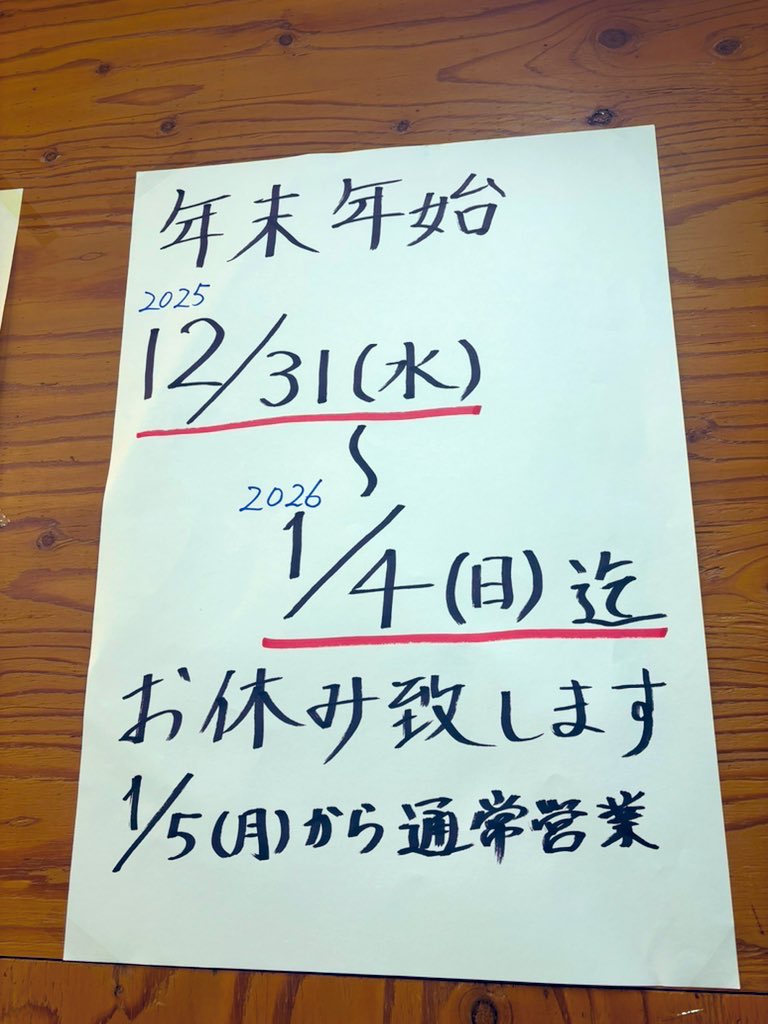 年末年始
2025
12/31(水)
〜
2026
1/4(日)迄
お休み致します
1/5(月)から通常営業